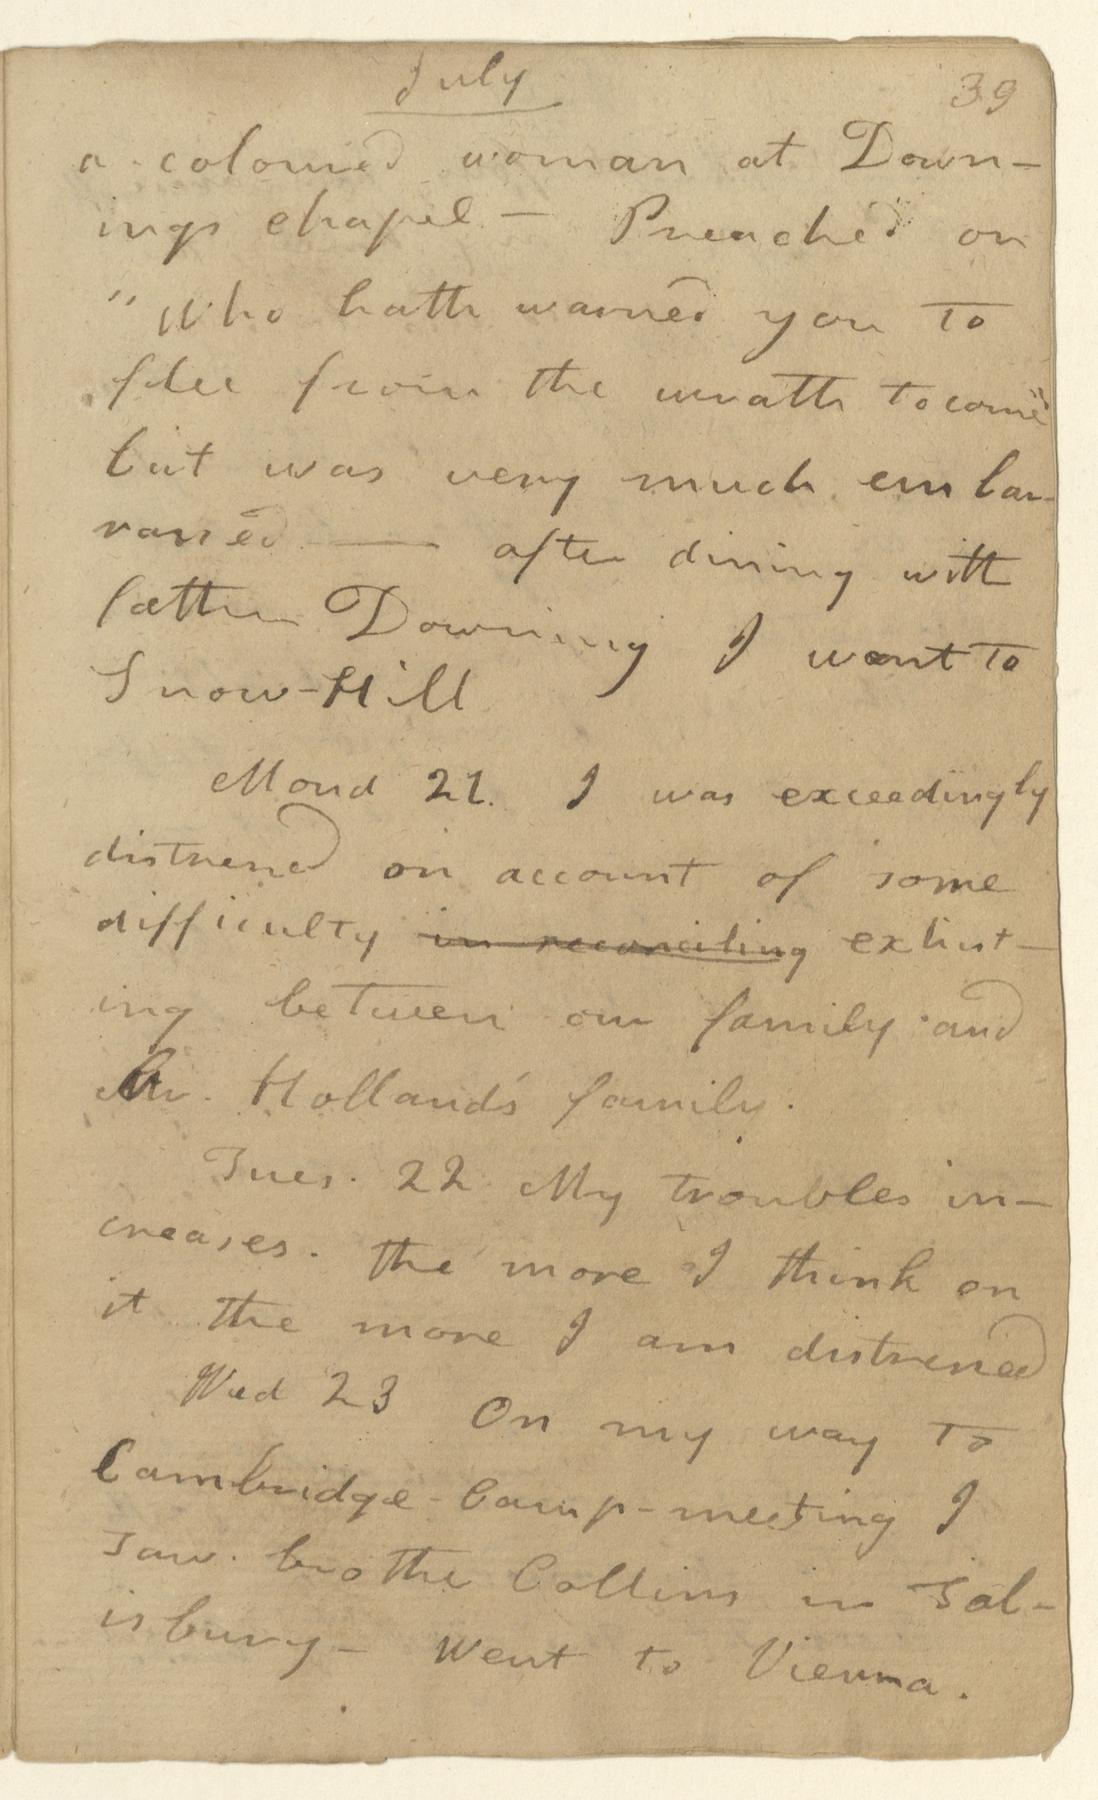 July 39
a coloured woman at Down-
ings chapel — Preached on
"Who hath warned you to
flee from the wrath to come"
but was very much embar-
rassed — after dining with
father Downing I went to
Snow-Hill
Mond 21. I was exceedingly
distressed on account of some
difficulty in reconciling exhist-
ing between our family and
Mr. Holland's family.
Tues. 22 My troubles in-
creases. the more I think on
it the more I am distressed
Wed 23 On my way to
Cambridge-Camp-meeting I
saw brother Collins in Sal-
isbury — Went to Vienna.